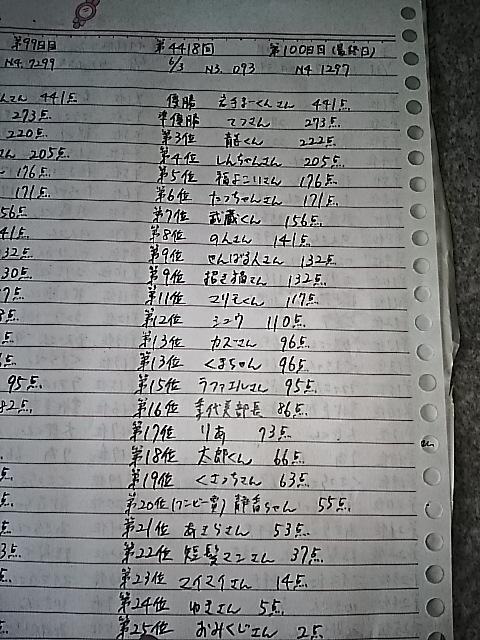 第99日目 第4418回 第100日目(最終日)
N4.7299 6/3 N3.093 N4 1297
さん 441点 優勝 えきまーくんさん 441点
273点 準優勝 てつさん 273点
220点 第3位 くん 222点
さん 205点 第4位 しんちゃんさん 205点
176点 第5位 福よこいさん 176点
171点 第6位 たっちゃんさん 171点
156点 第7位 武蔵くん 156点
141点 第8位 のんさん 141点
132点 第9位 せんぱるんさん 132点
130点 第9位 招き猫さん 132点
117点 第11位 マリモくん 117点
点 第12位 シュウ 110点
点 第13位 カズーさん 96点
点 第13位 くまちゃん 96点
95点 第15位 ラファエルさん 95点
82点 第16位 喜代美部長 86点
第17位 りあ 73点
第18位 太郎くん 66点
点 第19位 くさってさん 63点
点 第20位(ブービー賞) 静香ちゃん 55点
点 第21位 あきらさん 53点
3点 第22位 短髪マンさん 37点
点 第23位 マイマイさん 14点
第24位 ゆきさん 5点
第25位 おみくじさん 2点